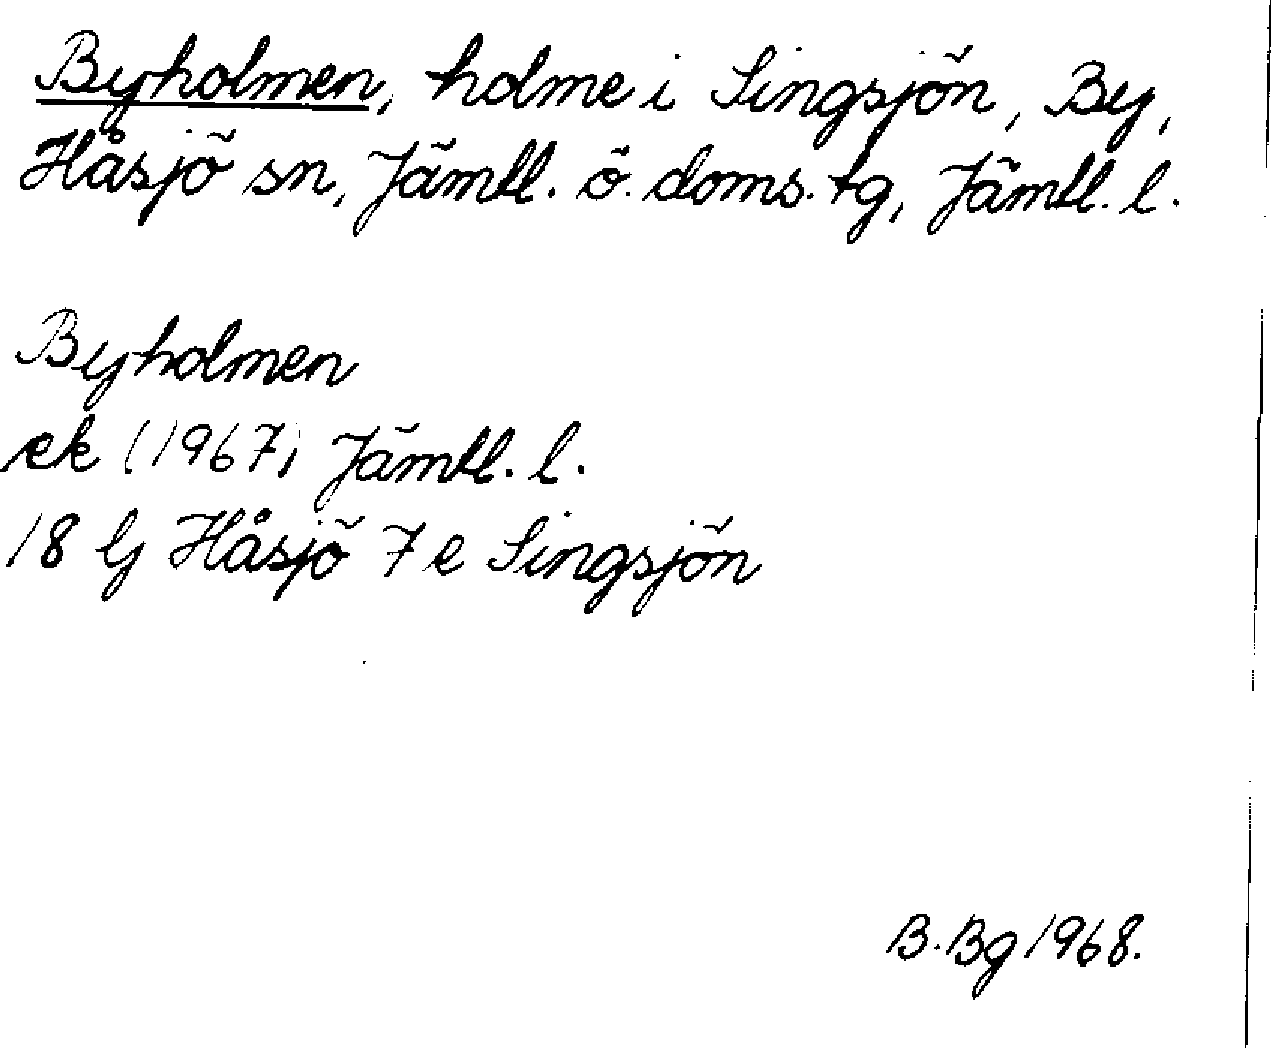 Byholmen, holme i Singsjön, By,
Håsjö sn, Jämtl. ö. doms. tg, Jämtl. l.
Byholmen
ek (1967) Jämtl. l.
18 Gj Håsjö 7 e Singsjön
B. Bg 1968.